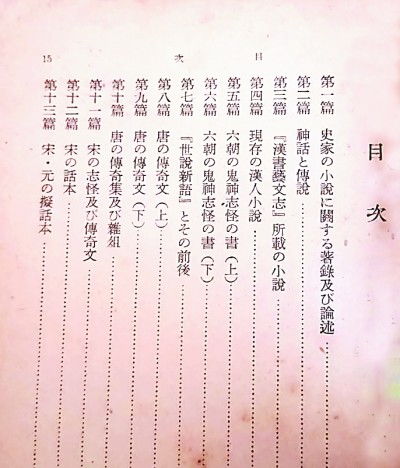 15 目次
目次
第一篇 史家の小說に關する著錄及び論述
第二篇 神話と傳說
第三篇 『漢書藝文志』所載の小說
第四篇 現存の漢人小說
第五篇 六朝の鬼神志怪の書(上)
第六篇 六朝の鬼神志怪の書(下)
第七篇 『世說新語』とその前後
第八篇 唐の傳奇文(上)
第九篇 唐の傳奇文(下)
第十篇 唐の傳奇集及び雜俎
第十一篇 宋の志怪及び傳奇文
第十二篇 宋の話本
第十三篇 宋・元の擬話本